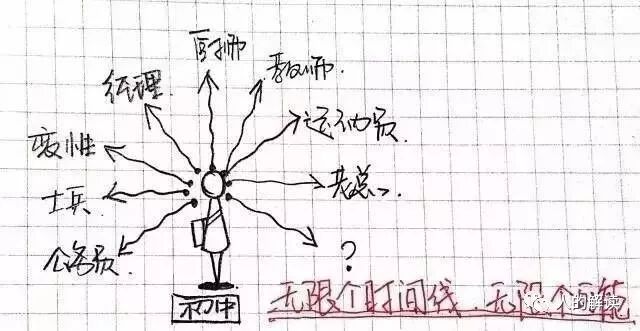 医师
教师
经理
运动员
变性
老总
士兵
?
公务员
初中
无限个时间线.无限个可能
人的解读